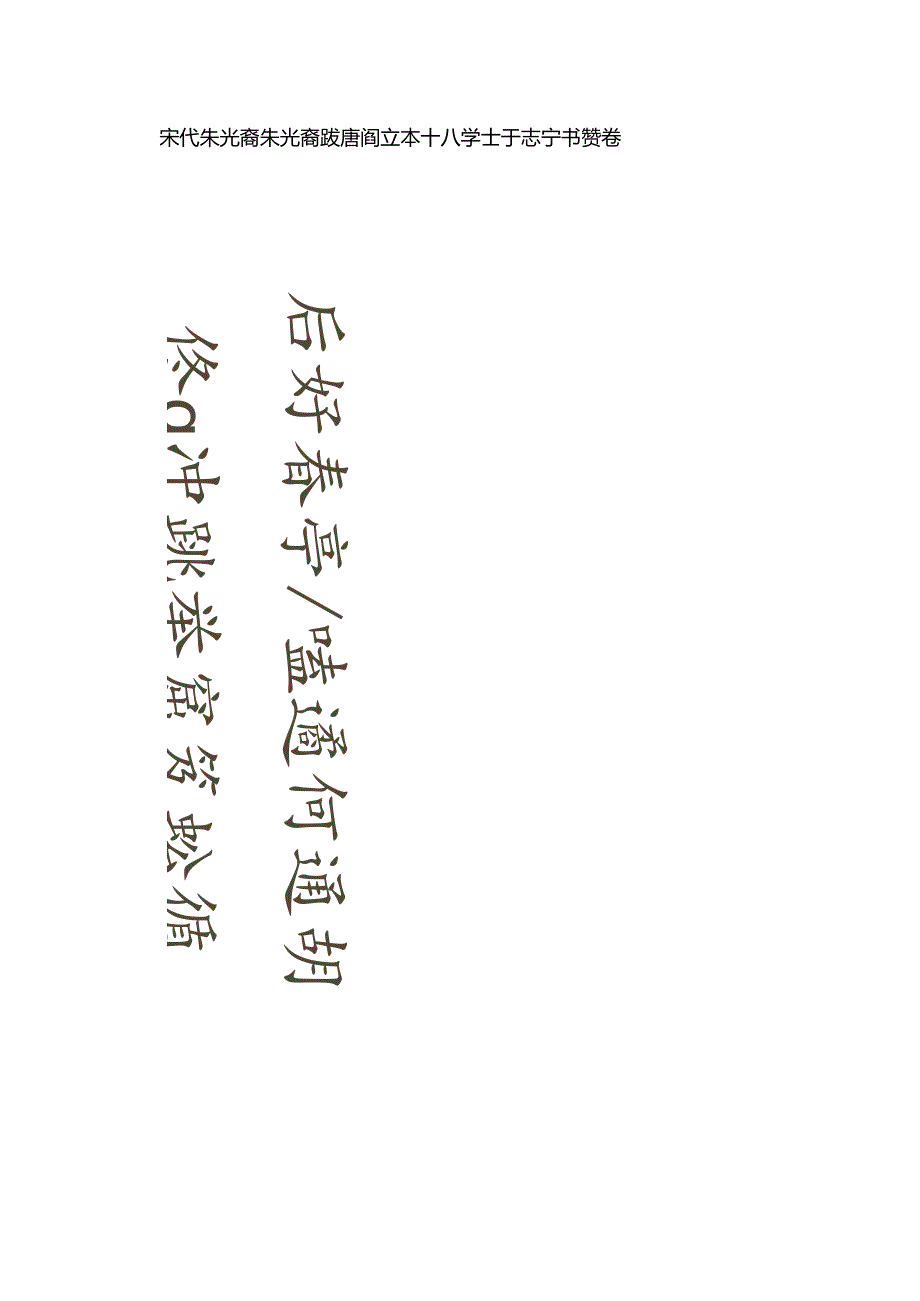 宋代朱光裔朱光裔跋唐阎立本十八学士于志宁书赞卷
后好春亭/嗑適何通胡
佟α冲跳举窟笏蚣循